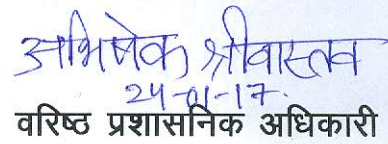 अभिषेक श्रीवास्तव
24-01-17.
वरिष्ठ प्रशासनिक अधिकारी